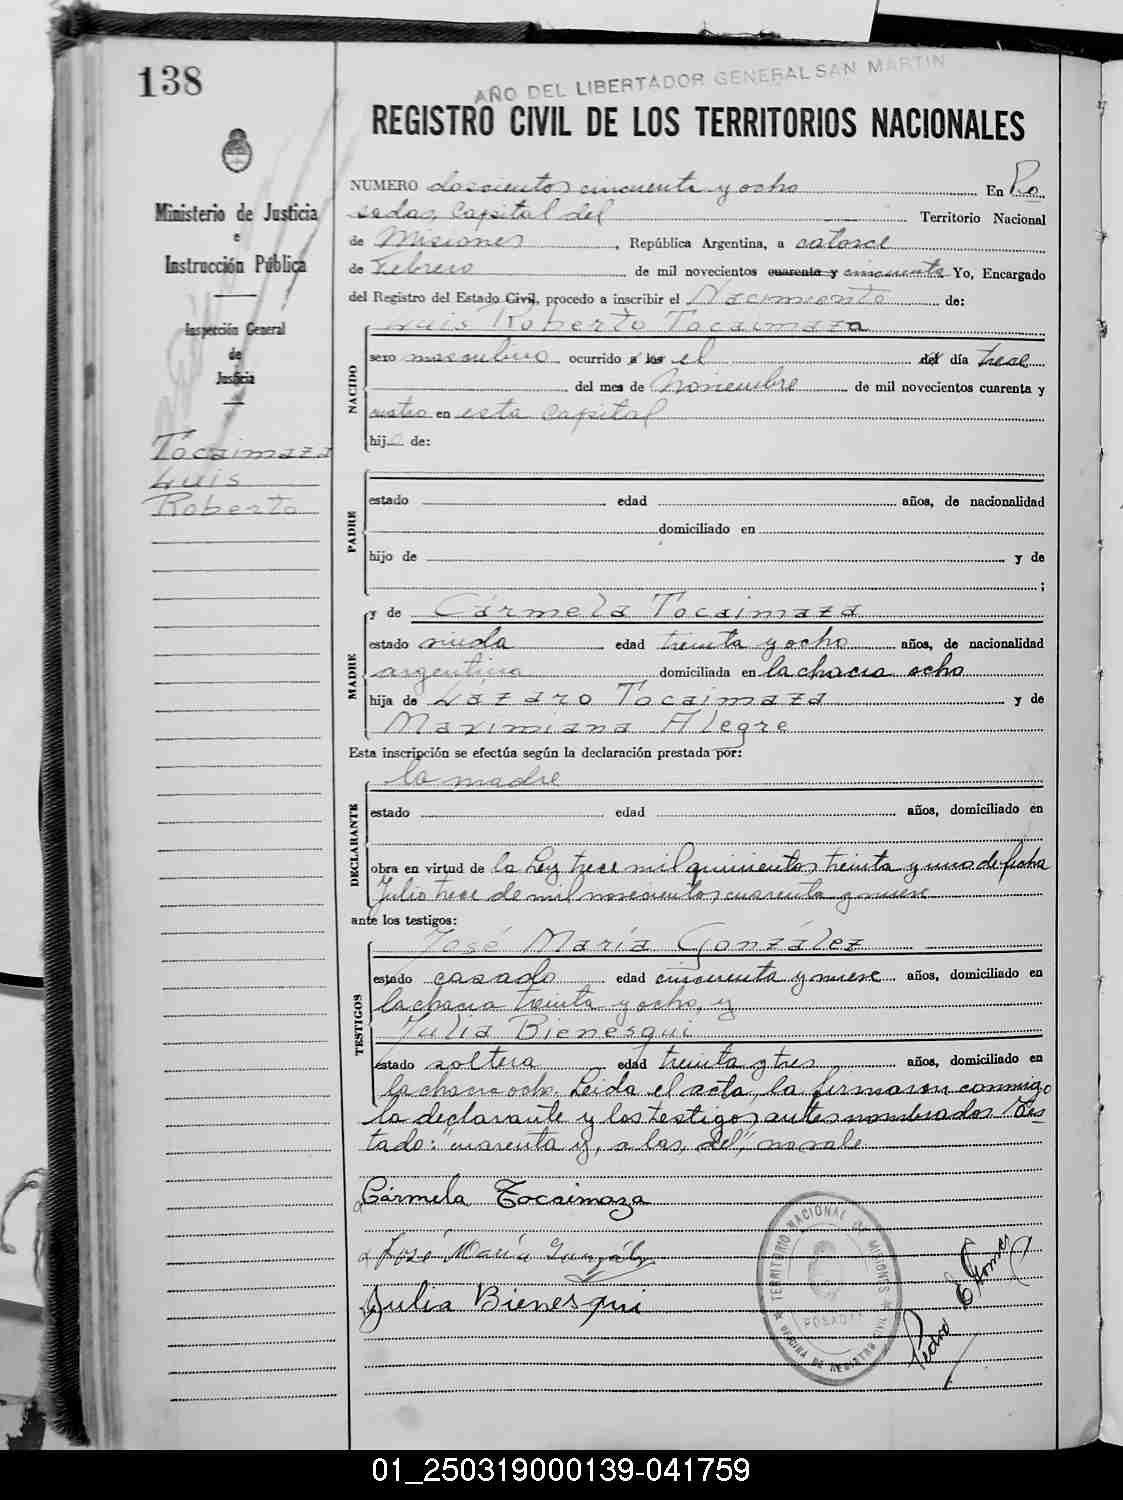 138
AÑO DEL LIBERTADOR GENERAL SAN MARTIN
REGISTRO CIVIL DE LOS TERRITORIOS NACIONALES
Ministerio de Justicia
e
Instrucción Pública
Inspección General
de
Justicia
Tocaimaza
Luis
Roberto
NUMERO doscientos cincuenta y ocho En Po
sadas, Capital del Territorio Nacional
de Misiones, República Argentina, a catorce
de Febrero de mil novecientos cuarenta y cincuenta Yo, Encargado
del Registro del Estado Civil, procedo a inscribir el Nacimiento de:
NACIDO
Luis Roberto Tocaimaza
sexo masculino ocurrido a las el del día trece
del mes de Noviembre de mil novecientos cuarenta y
cuatro en esta Capital
hijo de:
PADRE
estado edad años, de nacionalidad
domiciliado en
hijo de y de
;
MADRE
y de Cármela Tocaimaza
estado viuda edad treinta y ocho años, de nacionalidad
argentina domiciliada en la chacra ocho
hija de Lázaro Tocaimaza y de
Maximiana Alegre
Esta inscripción se efectúa según la declaración prestada por:
DECLARANTE
la madre
estado edad años, domiciliado en
obra en virtud de la Ley trece mil quinientos treinta y uno de fecha
Julio trece de mil novecientos cuarenta y nueve
ante los testigos:
TESTIGOS
José María González
estado casado edad cincuenta y nueve años, domiciliado en
la chacra treinta y ocho, y
Julia Bienesqui
estado soltera edad treinta y tres años, domiciliado en
la chacra ocho. Leida el acta, la firmaron conmigo
la declarante y los testigos antes nombrados Tes
tado: "cuarenta y, a las, del", no vale
Cármela Tocaimaza
José María González
Julia Bienesqui
TERRITORIO NACIONAL DE MISIONES
POSADAS
OFICINA DE REGISTRO CIVIL
Pedro E Gomez
01_250319000139-041759